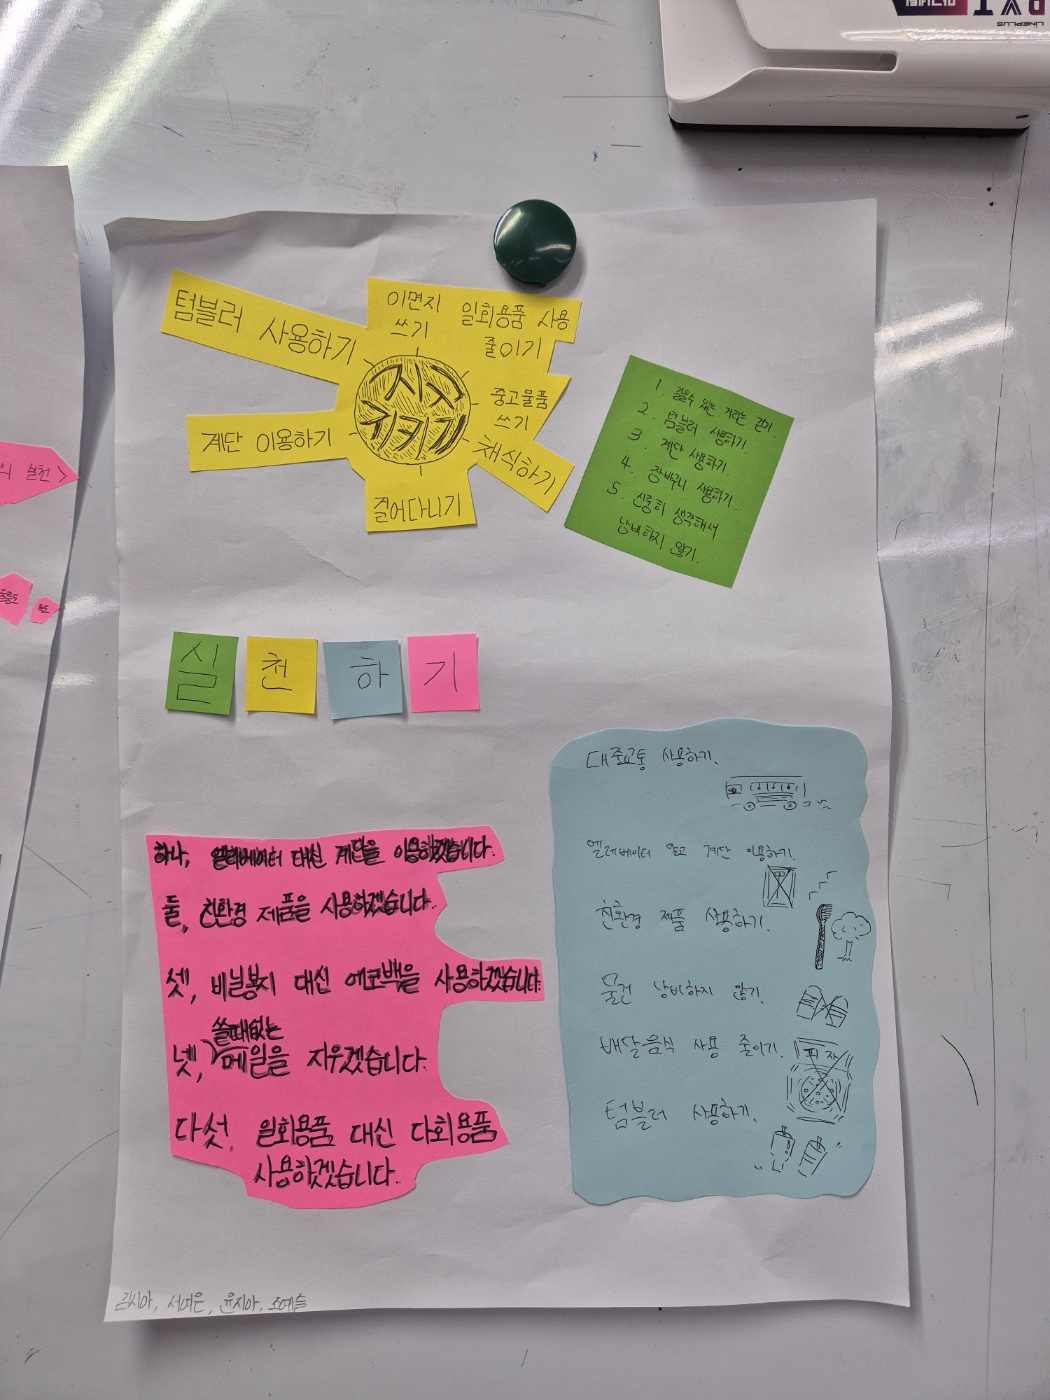 텀블러 사용하기
이면지
쓰기
일회용품 사용
줄이기
중고물품
쓰기
채식하기
걸어다니기
계단 이용하기
지구
지키기
1. 걸을수 있는 거리는 걷기.
2. 텀블러 사용하기.
3. 계단 사용하기.
4. 장바구니 사용하기.
5. 신중히 생각해서
낭비하지 않기.
실천하기
하나, 엘리베이터 대신 계단을 이용하겠습니다.
둘, 친환경 제품을 사용하겠습니다.
셋, 비닐봉지 대신 에코백을 사용하겠습니다.
쓸때없는
넷, 메일을 지우겠습니다.
다섯, 일회용품 대신 다회용품
사용하겠습니다.
대중교통 사용하기.
엘레베이터 말고 계단 이용하기.
친환경 제품 사용하기.
물건 낭비하지 않기.
배달음식 사용 줄이기.
피자
텀블러 사용하기.
김시아, 서여은, 윤지아, 조예슬
의 실천>
LINEPLUS